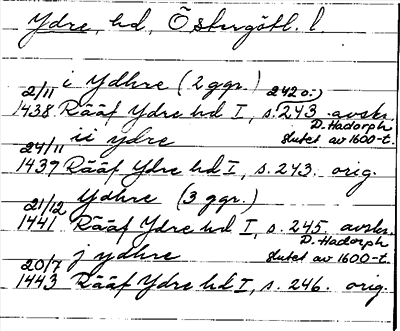 Ydre, hd, Östergötl. l.
i Ydhre (2 ggr.)
2/11 242 o:)
1438 Rääf Ydre hd I, s. 243 avskr.
D. Hadorph
ii ydre slutet av 1600-t.
24/11
1439 Rääf Ydre hd I, s. 243. orig.
Ydhre (3 ggr.)
21/12
1441 Rääf Ydre hd I, s. 245. avskr.
D. Hadorph
j ydhre slutet av 1600-t.
20/7
1443 Rääf Ydre hd I, s. 246. orig.